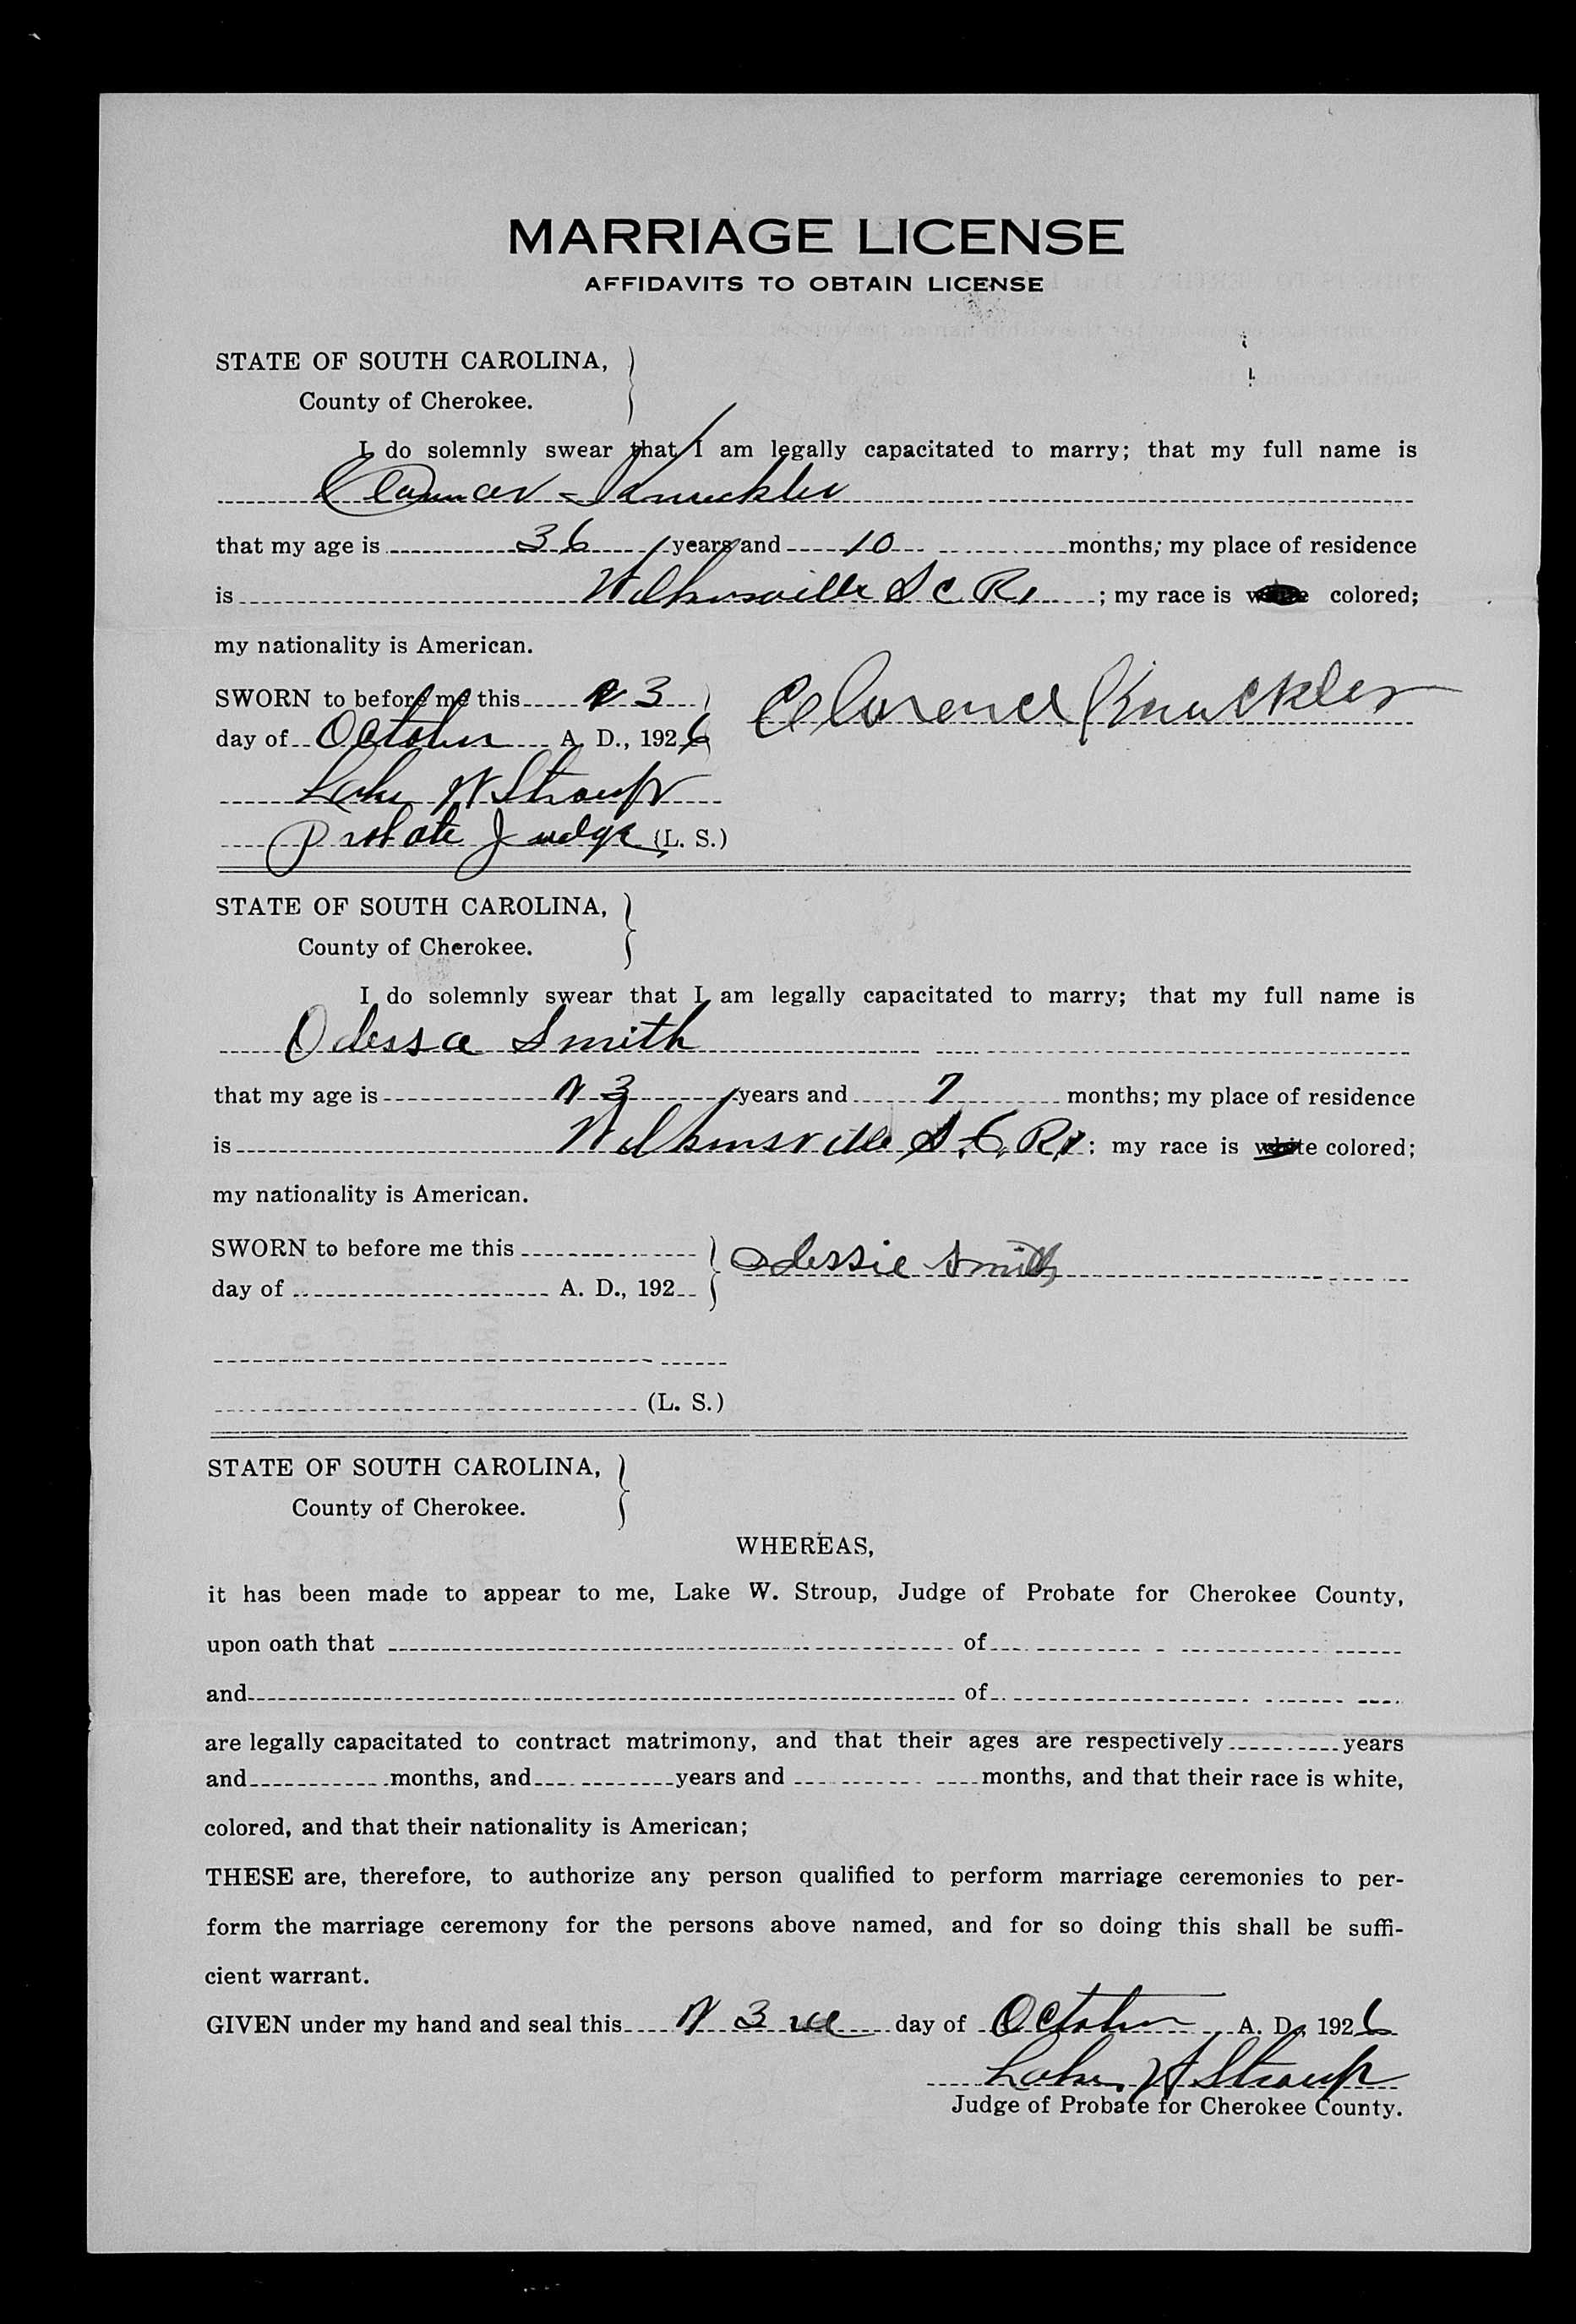 MARRIAGE LICENSE
AFFIDAVITS TO OBTAIN LICENSE
STATE OF SOUTH CAROLINA,
County of Cherokee.
I do solemnly swear that I am legally capacitated to marry; that my full name is
Knuckles
that my age is 36 years and 10 months; my place of residence
is Wilkinsville S C R1; my race is white colored;
my nationality is American.
SWORN to before me this 23 Clarence Knuckles
day of October A. D., 1926
Lake W Stroup
Probate Judge (L. S.)
STATE OF SOUTH CAROLINA,
County of Cherokee.
I do solemnly swear that I am legally capacitated to marry; that my full name is
Odessa Smith
that my age is 23 years and 7 months; my place of residence
is Wilkinsville S. C. R1; my race is white colored;
my nationality is American.
SWORN to before me this Odessie Smith
day of A. D., 192
(L. S.)
STATE OF SOUTH CAROLINA,
County of Cherokee.
WHEREAS,
it has been made to appear to me, Lake W. Stroup, Judge of Probate for Cherokee County,
upon oath that of
and of
are legally capacitated to contract matrimony, and that their ages are respectively years
and months, and years and months, and that their race is white,
colored, and that their nationality is American;
THESE are, therefore, to authorize any person qualified to perform marriage ceremonies to per-
form the marriage ceremony for the persons above named, and for so doing this shall be suffi-
cient warrant.
GIVEN under my hand and seal this 23rd day of October A. D., 1926
Lake W Stroup
Judge of Probate for Cherokee County.